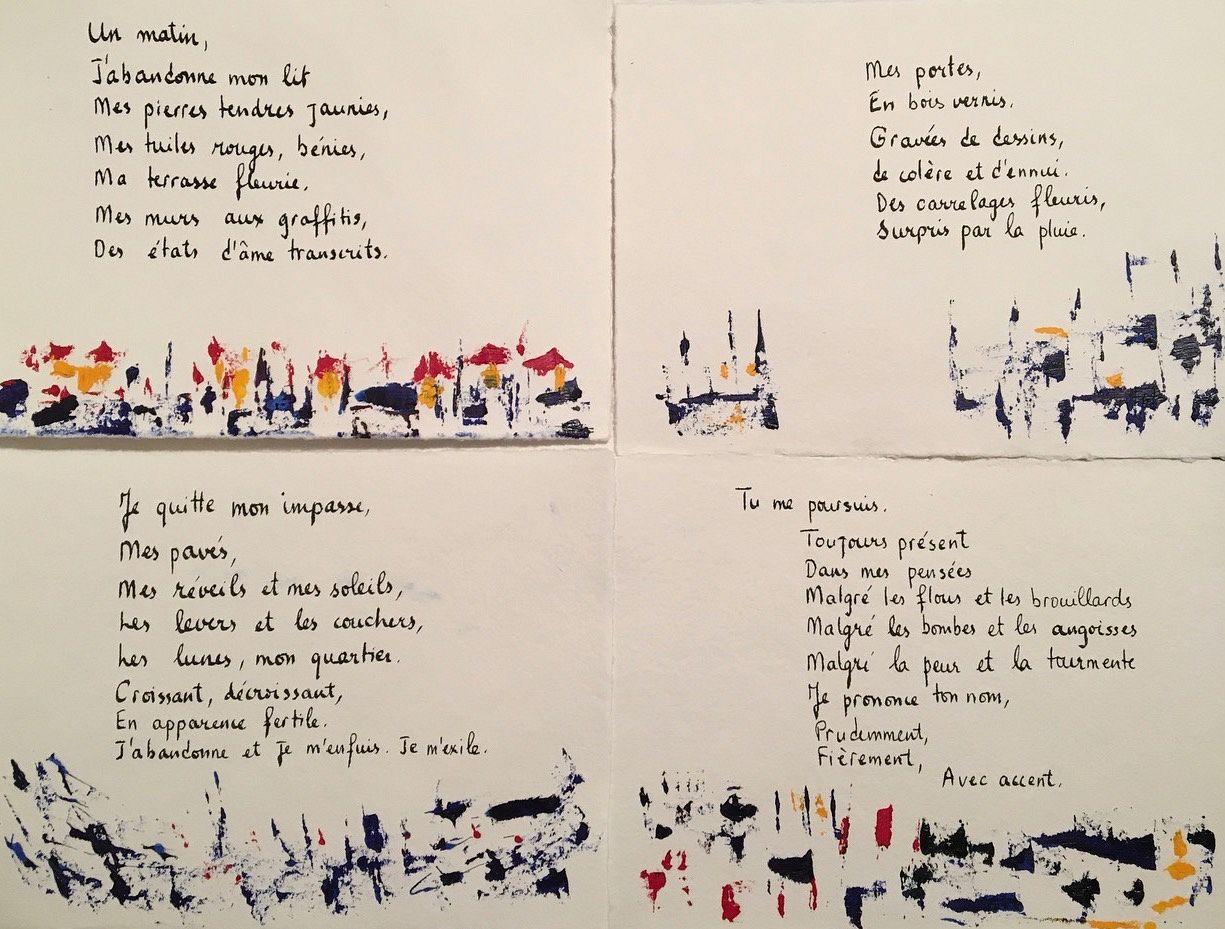 Un matin,
J'abandonne mon lit
Mes pierres tendres jaunies,
Mes tuiles rouges, bénies,
Ma terrasse fleurie.
Mes murs aux graffitis,
Des états d'âme transcrits.
Mes portes,
En bois vernis.
Gravées de dessins,
de colère et d'ennui.
Des carrelages fleuris,
Surpris par la pluie.
Je quitte mon impasse,
Mes pavés,
Mes réveils et mes soleils,
Les levers et les couchers,
Les lunes, mon quartier.
Croissant, décroissant,
En apparence fertile.
J'abandonne et je m'enfuis. Je m'exile.
Tu me poursuis.
Toujours présent
Dans mes pensées
Malgré les flous et les brouillards
Malgré les bombes et les angoisses
Malgré la peur et la tourmente
Je prononce ton nom,
Prudemment,
Fièrement,
Avec accent.